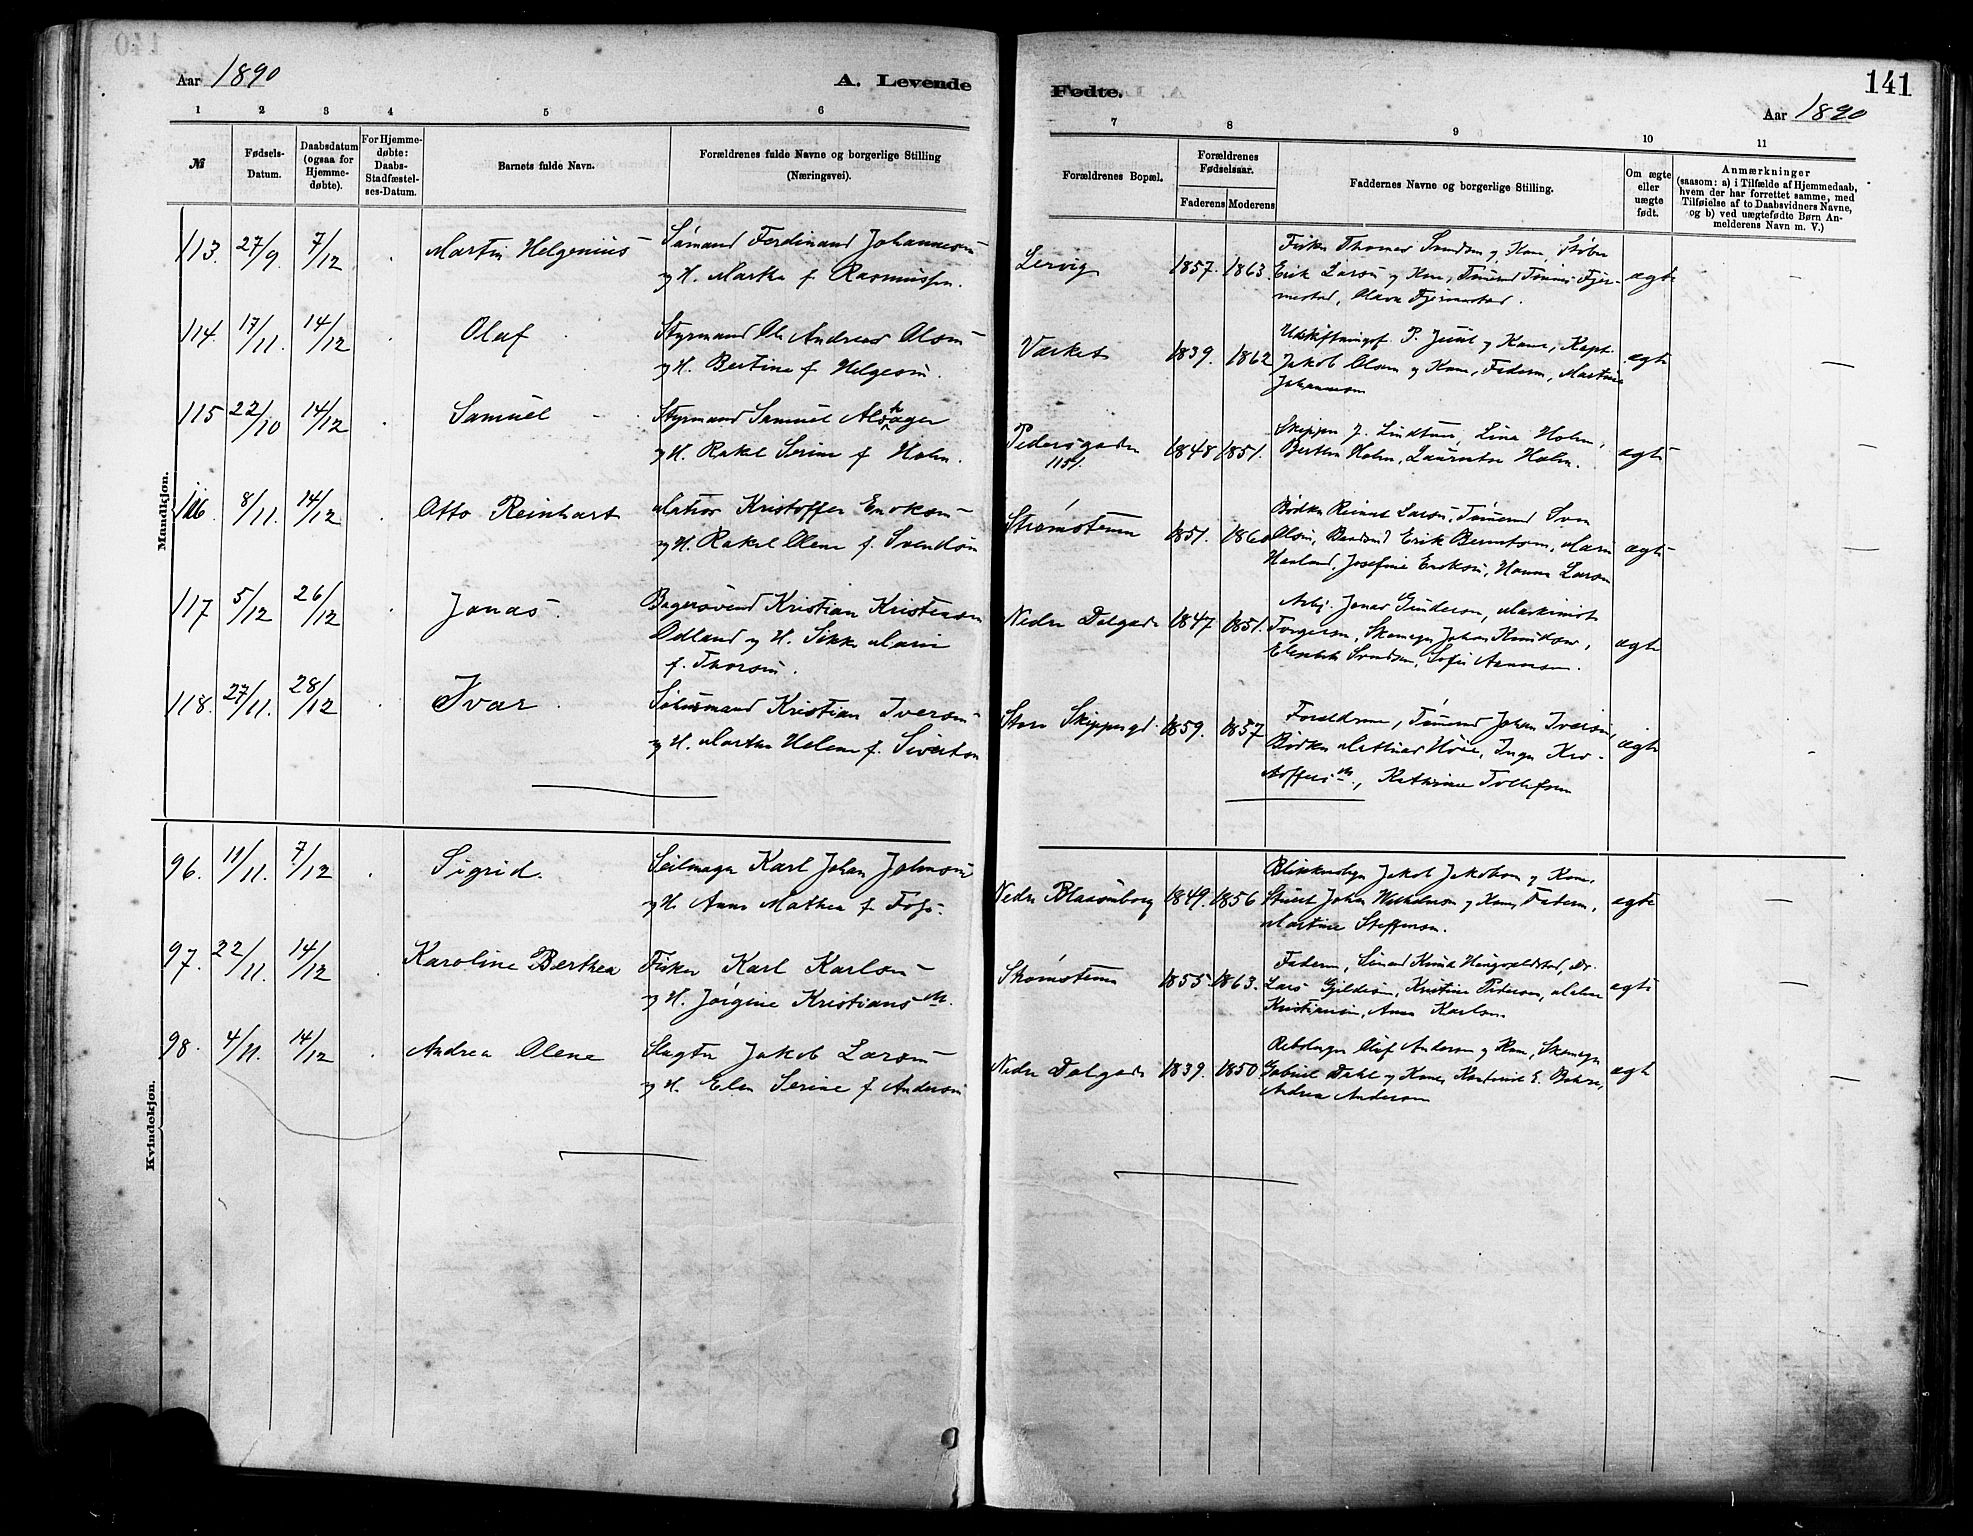 Aar 1890
A. Levende
1 2 3 4 5 6
№ Fødsels-Datum. Daabsdatum (ogsaa for Hjemmedøbte). For Hjemmedøbte: Daabs-Stadfæstelses-Datum. Barnets fulde Navn. Forældrenes fulde Navne og borgerlige Stilling (Næringsvei).
Mandkjøn.
113. 27/9. 7/12 Martin Helgenius Sømand Ferdinand Johannesen
og H. Martha f. Rasmussen.
114. 17/11. 14/12 Olaf Styrmand Ole Andreas Olsen
og H. Bertine f. Helgesen.
115 22/10 14/12 Samuel Styrmand Samuel Alsager
og H. Rakel Serine f. Holm.
116. 8/11. 14/12 Otto Reinhart Matros Kristoffer Eriksen
og H. Rakel Olene f. Svendsen
117 5/12 26/12 Jonas. Bagersvend Kristian Kristensen
Ødland og H. Sikke Marie
f. Thorsen.
118. 27/11. 28/12 Ivar Kristian Iversen
og H. Marthe Helene f. Sivertsen
Kvindekjøn.
96. 11/11. 7/12 Sigrid. Seilmager Karl Johan Johnsen
og H. Anne Mathea f. Foss.
97. 22/11. 14/12 Karoline Berthea Fisker Karl Karlsen
og H. Jørgine Kristians
98. 4/11. 14/12 Andrea Olene Slagter Jakob Larsen
og H. Elen Serine f. Andersen
Fødte.
141
Aar 1890
7 8 9 10 11
Forældrenes Bopæl. Forældrenes Fødselsaar. Faderens Moderens Faddernes Navne og borgerlige Stilling. Om ægte eller uægte født. Anmærkninger
(saasom: a) i Tilfælde af Hjemmedaab,
hvem der har forrettet samme, med
Tilføielse af to Daabsvidners Navne,
og b) ved uægtefødte Børn Anmelderens
Navn m. V.)
Lervig 1857. 1863. Fisker Thomas Svendsen og Kone, Støber
Erik Larsen og Kone, Tønnes Fjermestad, Olava Fjermestad. ægte
Værket 1839. 1862 P. Juul og Kone, Kapt.
Jakob Olsen og Kone, Faderen, Martine
Johannesen ægte
Pedersgaden
1151. 1848 1851. Skipper J. Lindtner, Lina Holm,
Berthe Holm, Laurentse Holm. ægte
Strømstenen 1851. 1860 Bødker Reinert Larsen, Tømmermd Sven
Olsen, Erik Berntsen, Maren
Haaland, Josefine Eriksen, Hanna Larsen ægte
Nedre Dalgade 1847. 1851. Arbj. Jonas Gundersen, Maskinist
Torgersen, Skomagr Johan Knudsen,
Elisabeth Svendsen, Sofie Aanensen. ægte
Store Skippergd 1859. 1857 Forældrene, Tømmermd Johan Iversen,
Bødker Mathias Høie, Inga Kristoffers, Kathrine Tollefsen ægte
Nedre Blaasenborg 1849. 1856 Jakob Jakobsen og Kone,
Stuert Johan Wilhelmsen og Kone, Faderen,
Martine Steffensen. ægte
Strømstenen 1855. 1863. Faderen, Knud
Lars Gjildesen, Kristine Pedersen, Malene
Kristiansen, Anna Karlsen. ægte
Nedre Dalgade 1839. 1850 Rebslager Olof Andersen og Kone, Skomagr
Gabriel Dahl og Kone,
Andrea Andersen ægte